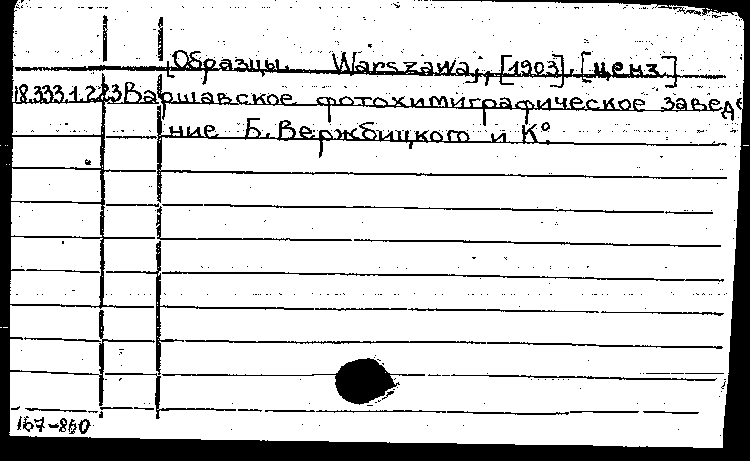 [Образцы. Warszawa, [1903]. [ценз.]
18.333.1.223 Варшавское фотохимиграфическое заведе
ние Б. Вержбицкого и К°.
167-860